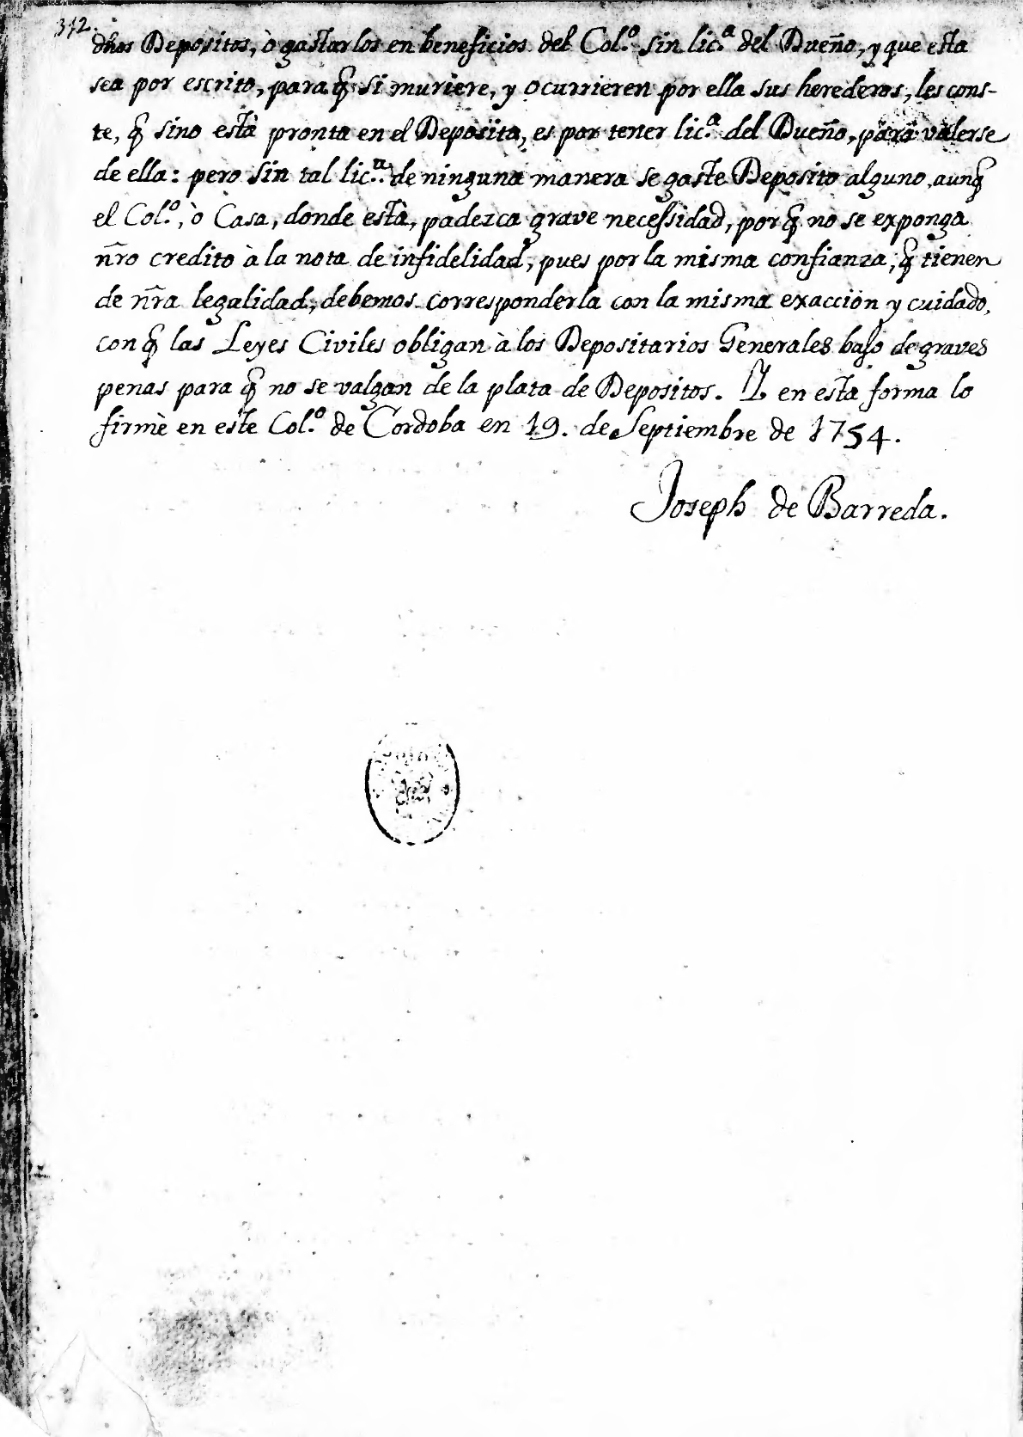 312.
dhos Depositos, ò gastarlos en beneficios del Col.º sin lic.ª del Dueño, y que esta
sea por escrito, para q̃ si muriere, y ocurrieren por ella sus herederos, les cons-
te, q̃ sino està pronta en el Deposito, es por tener lic.ª del Dueño, para valerse
de ella: pero sin tal lic.ª de ninguna manera se gaste Deposito alguno, aunq̃
el Col.º, ò Casa, donde està, padezca grave necessidad, porq̃ no se exponga
ñro credito à la nota de infidelidad, pues por la misma confianza, q̃ tienen
de ñra legalidad, debemos corresponderla con la misma exacción y cuidado,
con q̃ las Leyes Civiles obligan à los Depositarios Generales bajo de graves
penas para q̃ no se valgan de la plata de Depositos. Y en esta forma lo
firmè en este Col.º de Cordoba en 19. de Septiembre de 1754.
Joseph de Barreda.